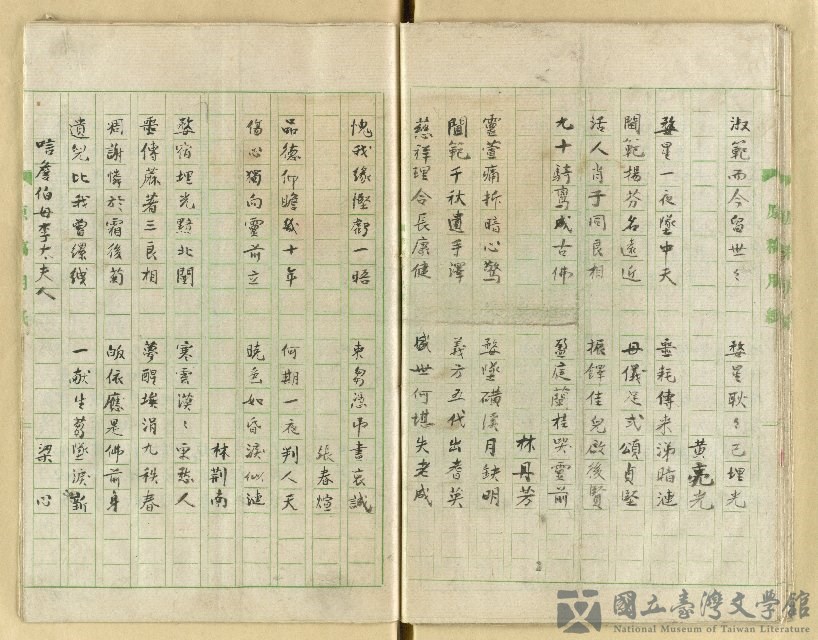 淑範而今留世々 婺星耿々已埋光
黃亮光
婺星一夜墜中天 噩耗傳来涕暗漣
閫範揚芬名遠近 母儀足式頌貞堅
活人肖子同良相 振鐸佳兒啟後賢
九十騎鸞成古佛 盈庭蘭桂哭靈前
林丹芳
靈萱痛折暗心驚 婺墜磺溪月缺明
閫範千秋遺手澤 義方五代出耆英
慈祥理合長康健 盛世何堪失老成
愧我緣慳虧一晤 東芻憑吊書哀誠
張春煊
品德仰瞻幾十年 何期一夜判人天
傷心獨向靈前立 曉色如昏淚似漣
林荊南
婺宿埋光黯北閣 寒雲漠々更愁人
垂傳蔴著三良相 夢醒埃涓九秩春
凋謝憐於霜後菊 皈依應是佛前身
遺兒比我曾縲絏 一献生芻墜淚新
唁詹伯母李太夫人 梁心
國立臺灣文學館
National Museum of Taiwan Literature